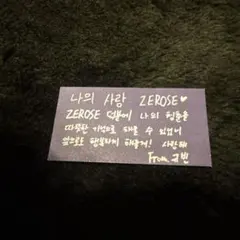 나의 사랑 ZEROSE♥
ZEROSE 덕분에 나의 힘듦을
따뜻한 기억으로 채울 수 있었어
앞으로도 행복하게 해줄게! 사랑해
From 규빈